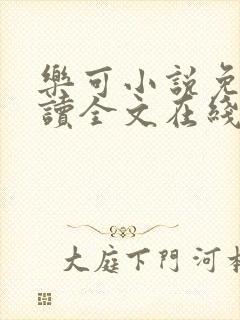 樂可小說免
讀全文在綫
大庭下門河